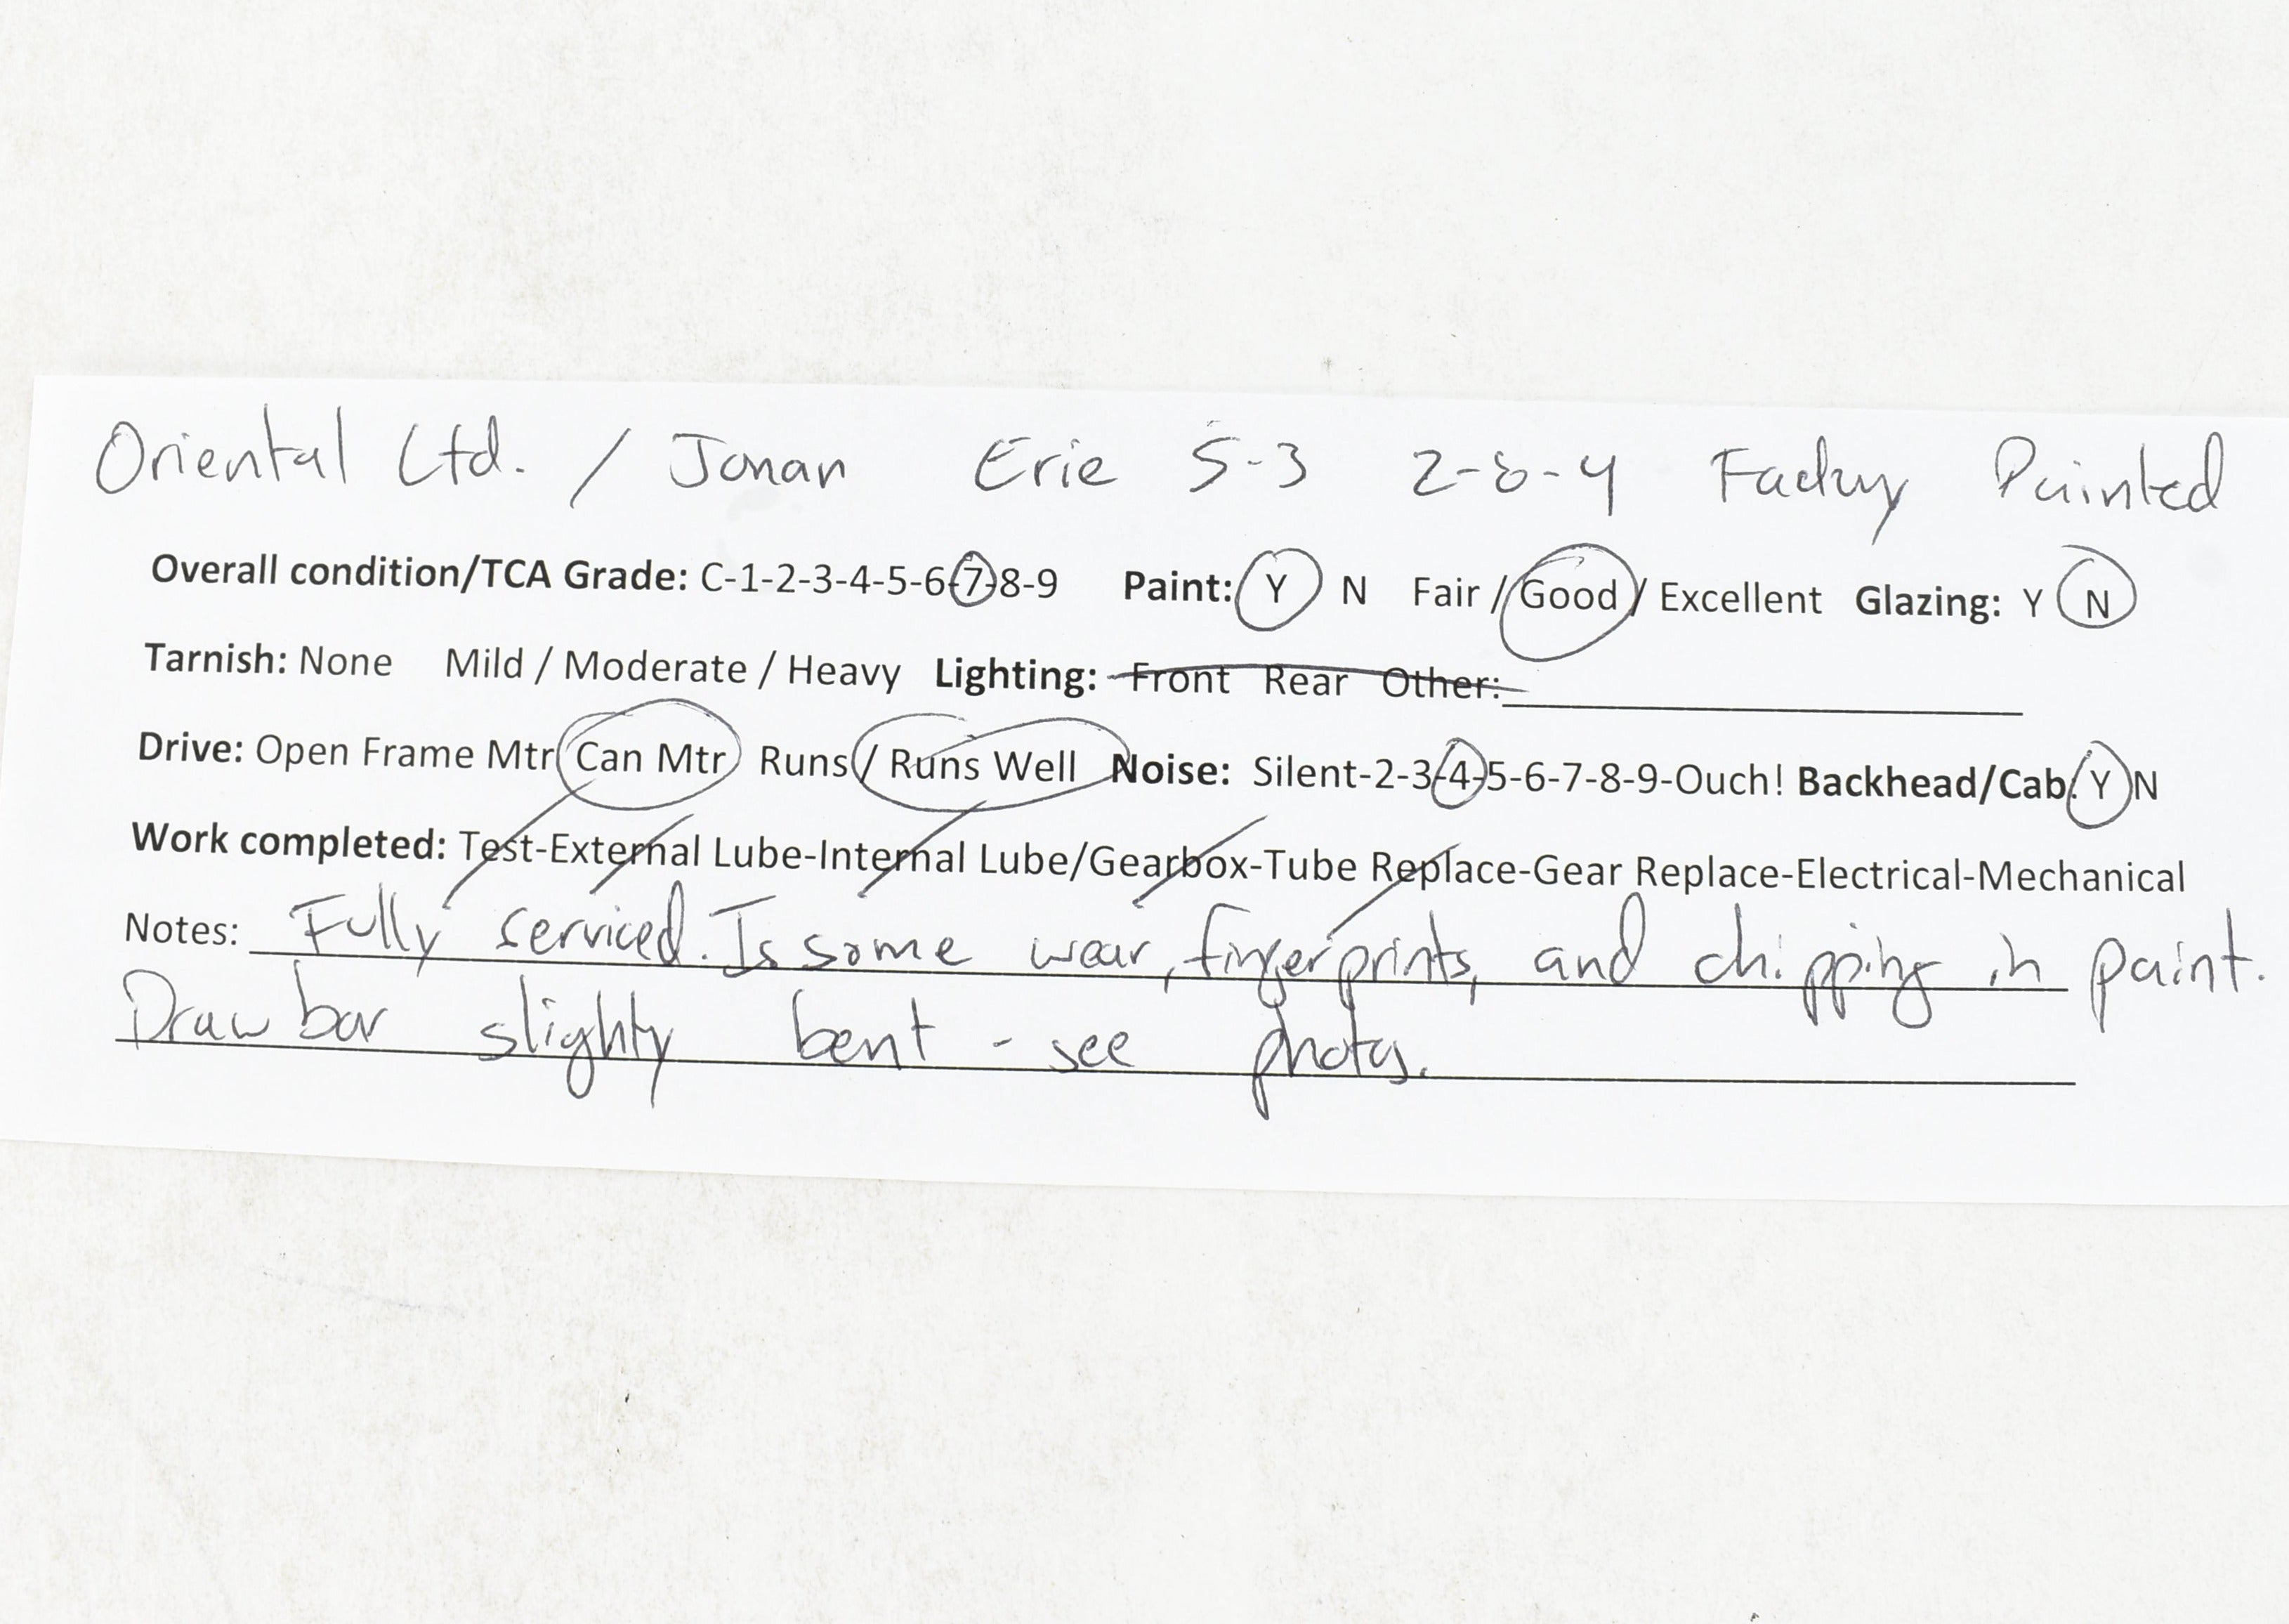 Oriental Ltd. / Jonan Erie S-3 2-8-4 Factory Painted
Overall condition/TCA Grade: C-1-2-3-4-5-6-7-8-9 Paint: Y N Fair / Good / Excellent Glazing: Y N
Tarnish: None Mild / Moderate / Heavy Lighting: Front Rear Other:
Drive: Open Frame Mtr Can Mtr Runs / Runs Well Noise: Silent-2-3-4-5-6-7-8-9-Ouch! Backhead/Cab: Y N
Work completed: Test-External Lube-Internal Lube/Gearbox-Tube Replace-Gear Replace-Electrical-Mechanical
Notes: Fully serviced. Is some wear, fingerprints, and chipping in paint.
Drawbar slighty bent - see photos.